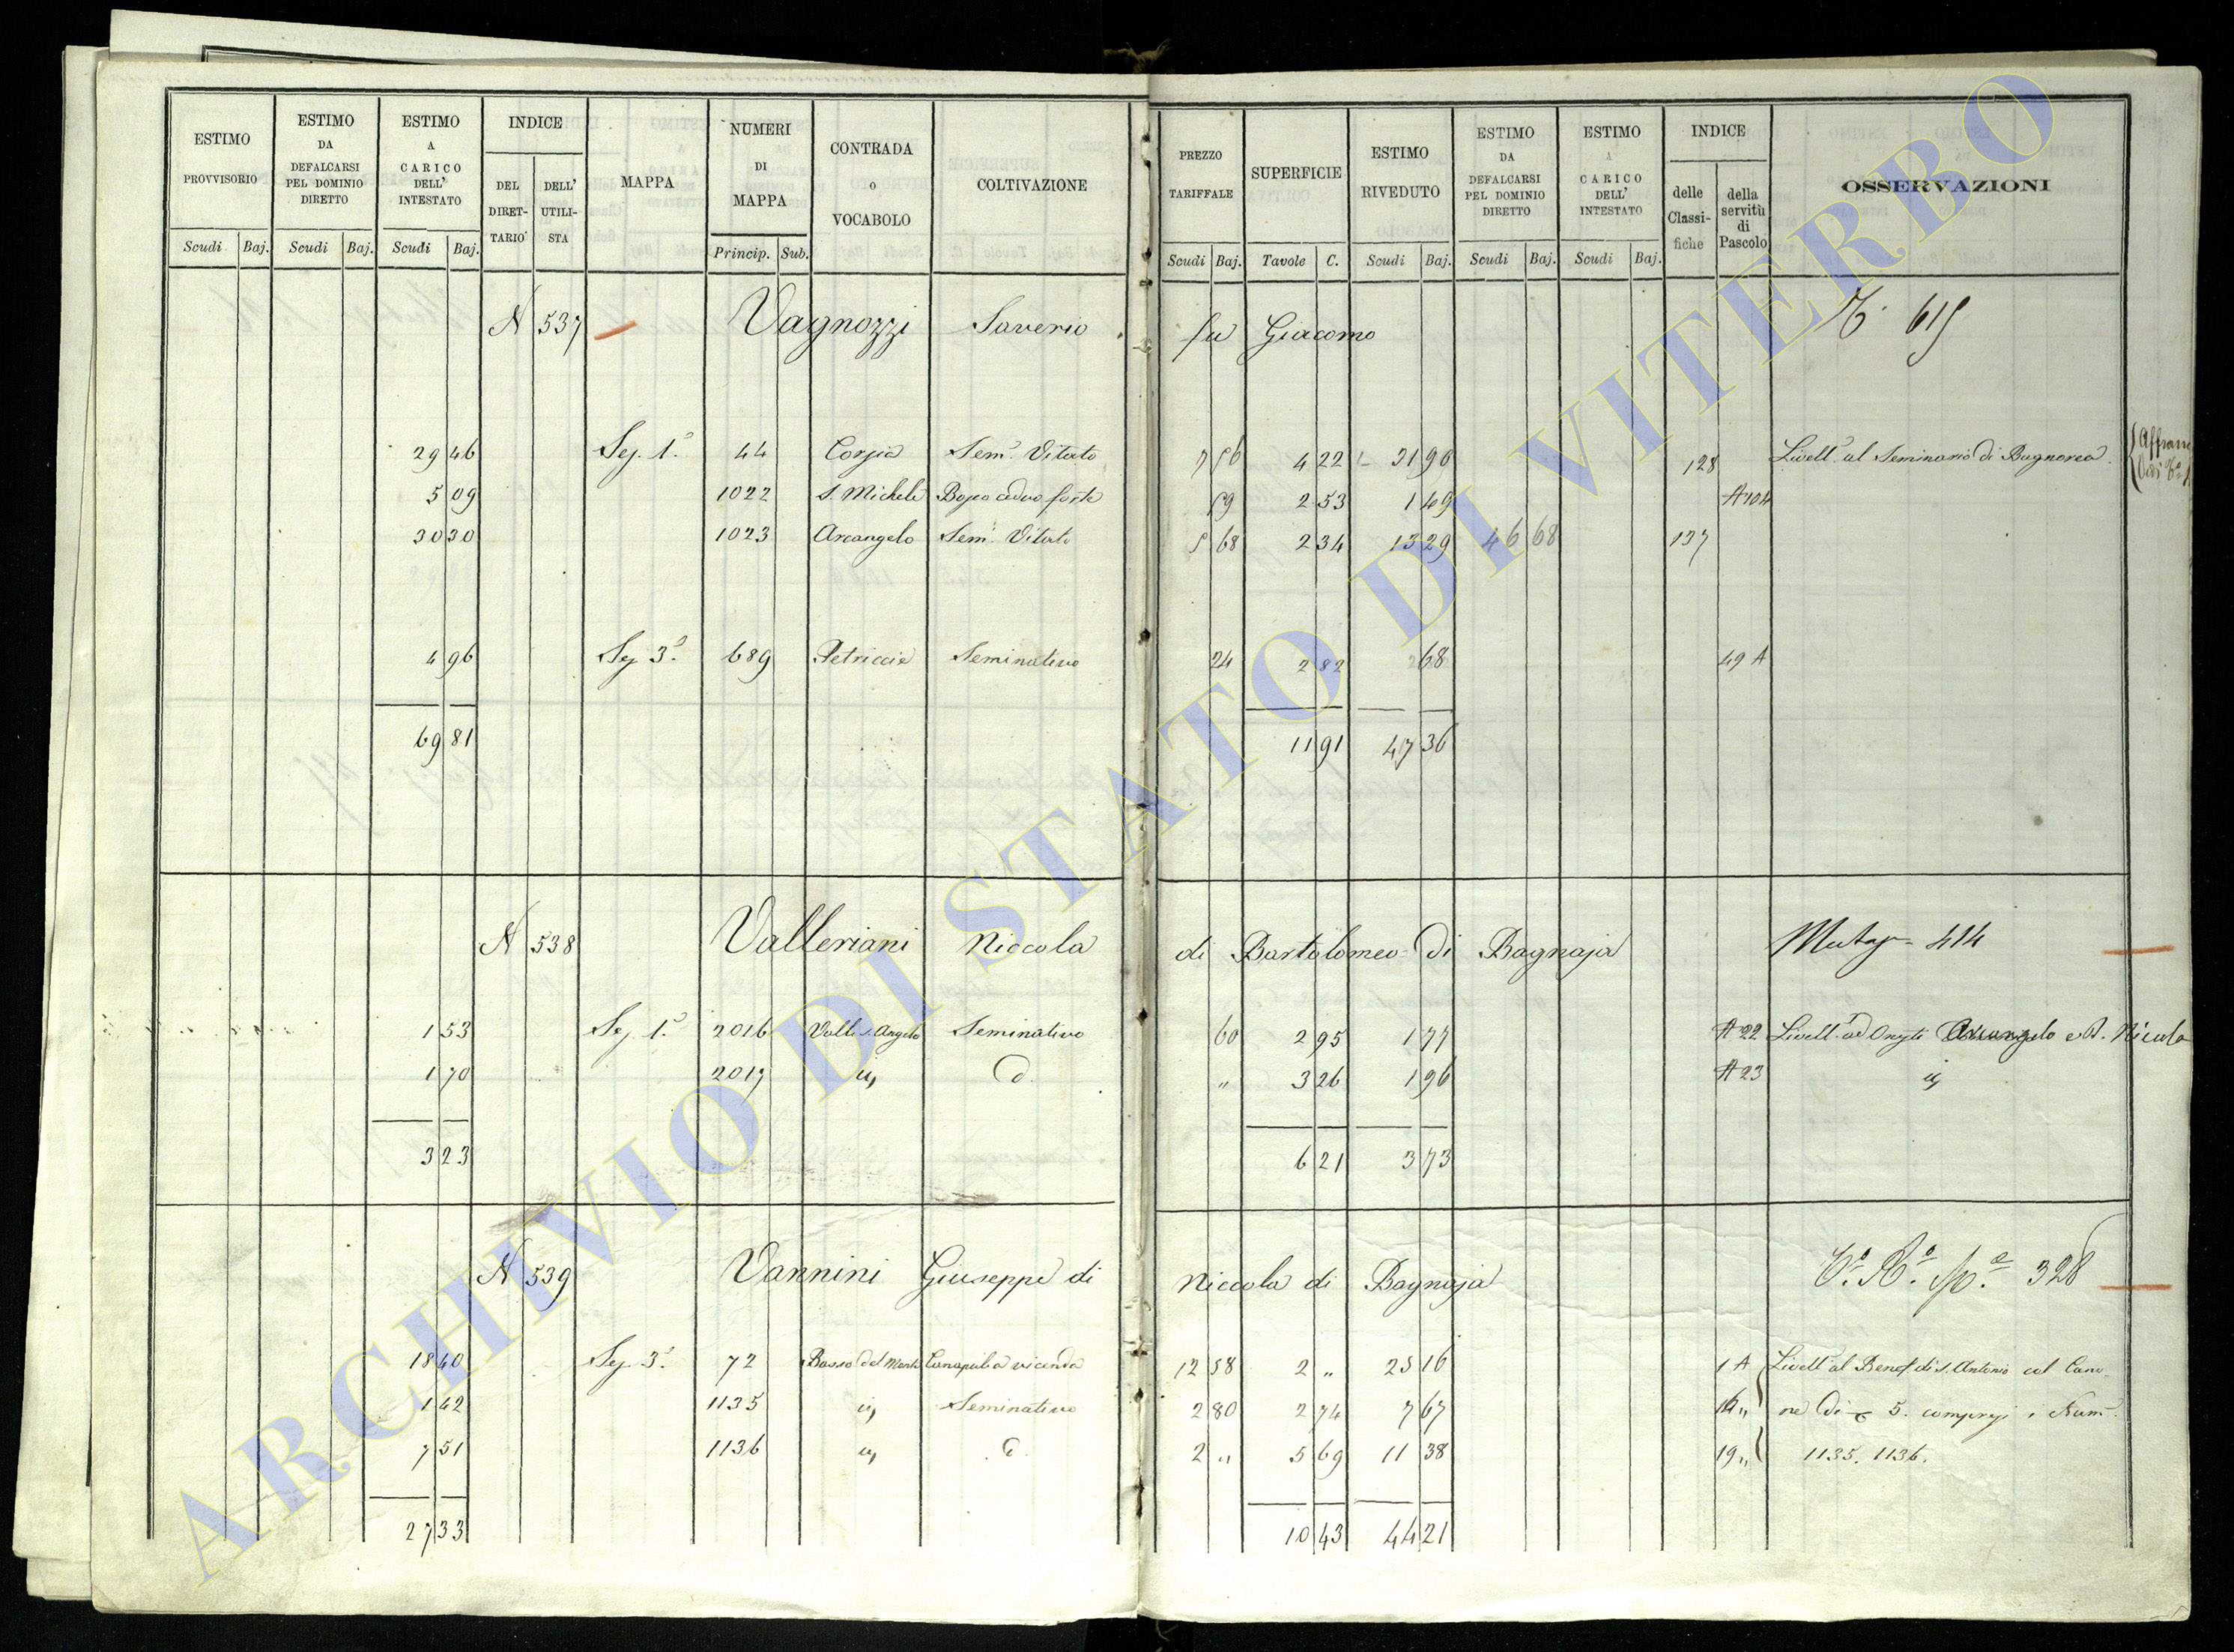 ESTIMO PROVVISORIO
Scudi Baj.
ESTIMO DA DEFALCARSI PEL DOMINIO DIRETTO
Scudi Baj.
ESTIMO A CARICO DELL' INTESTATO
Scudi Baj.
INDICE
DEL DIRET-TARIO
DELL' UTILI-STA
MAPPA
NUMERI DI MAPPA
Princip. Sub.
CONTRADA o VOCABOLO
COLTIVAZIONE
PREZZO TARIFFALE
Scudi Baj.
SUPERFICIE
Tavole C.
ESTIMO RIVEDUTO
Scudi Baj.
ESTIMO DA DEFALCARSI PEL DOMINIO DIRETTO
Scudi Baj.
ESTIMO A CARICO DELL' INTESTATO
Scudi Baj.
INDICE
delle Classi-fiche
della servitù di Pascolo
OSSERVAZIONI
N 537 Vagnozzi Saverio fu Giacomo 615
29 46 Sez. 1ª 44 Corgia Semo Vitato 7 56 4 22 31 90 128 Livello al Seminario di Bagnorea
5 09 1022 S. Michele Bosco ceduo forte 59 2 53 1 49 A 104
30 30 1023 Arcangelo Semo Vitato 5 68 2 34 13 29 46 68 137
4 96 Sez. 3ª 689 Petriccia Seminativo 24 2 82 68 49 A
69 81 11 91 47 36
N 538 Valleriani Niccola di Bartolomeo di Bagnaja 414
1 53 Sez. 1ª 2016 Valle S. Angelo Seminativo 60 2 95 1 77 A 22 Livello ad Arcangelo e Nicola
1 70 2017 id. 〃 3 26 1 96 A 23
3 23 6 21 3 73
N 539 Vannini Giuseppe di Niccola di Bagnaja 328
18 40 Sez. 3ª 72 Basso del Monte Canapulea vicenda 12 58 2 〃 25 16 1 A Livello al Benef. di S. Antonio col Cano-
1 42 1135 Seminativo 2 80 2 74 7 67 ne di 5. compresi i Num.
7 51 1136 2 〃 5 69 11 38 19 〃 1135. 1136.
27 33 10 43 44 21
ARCHIVIO DI STATO DI VITERBO